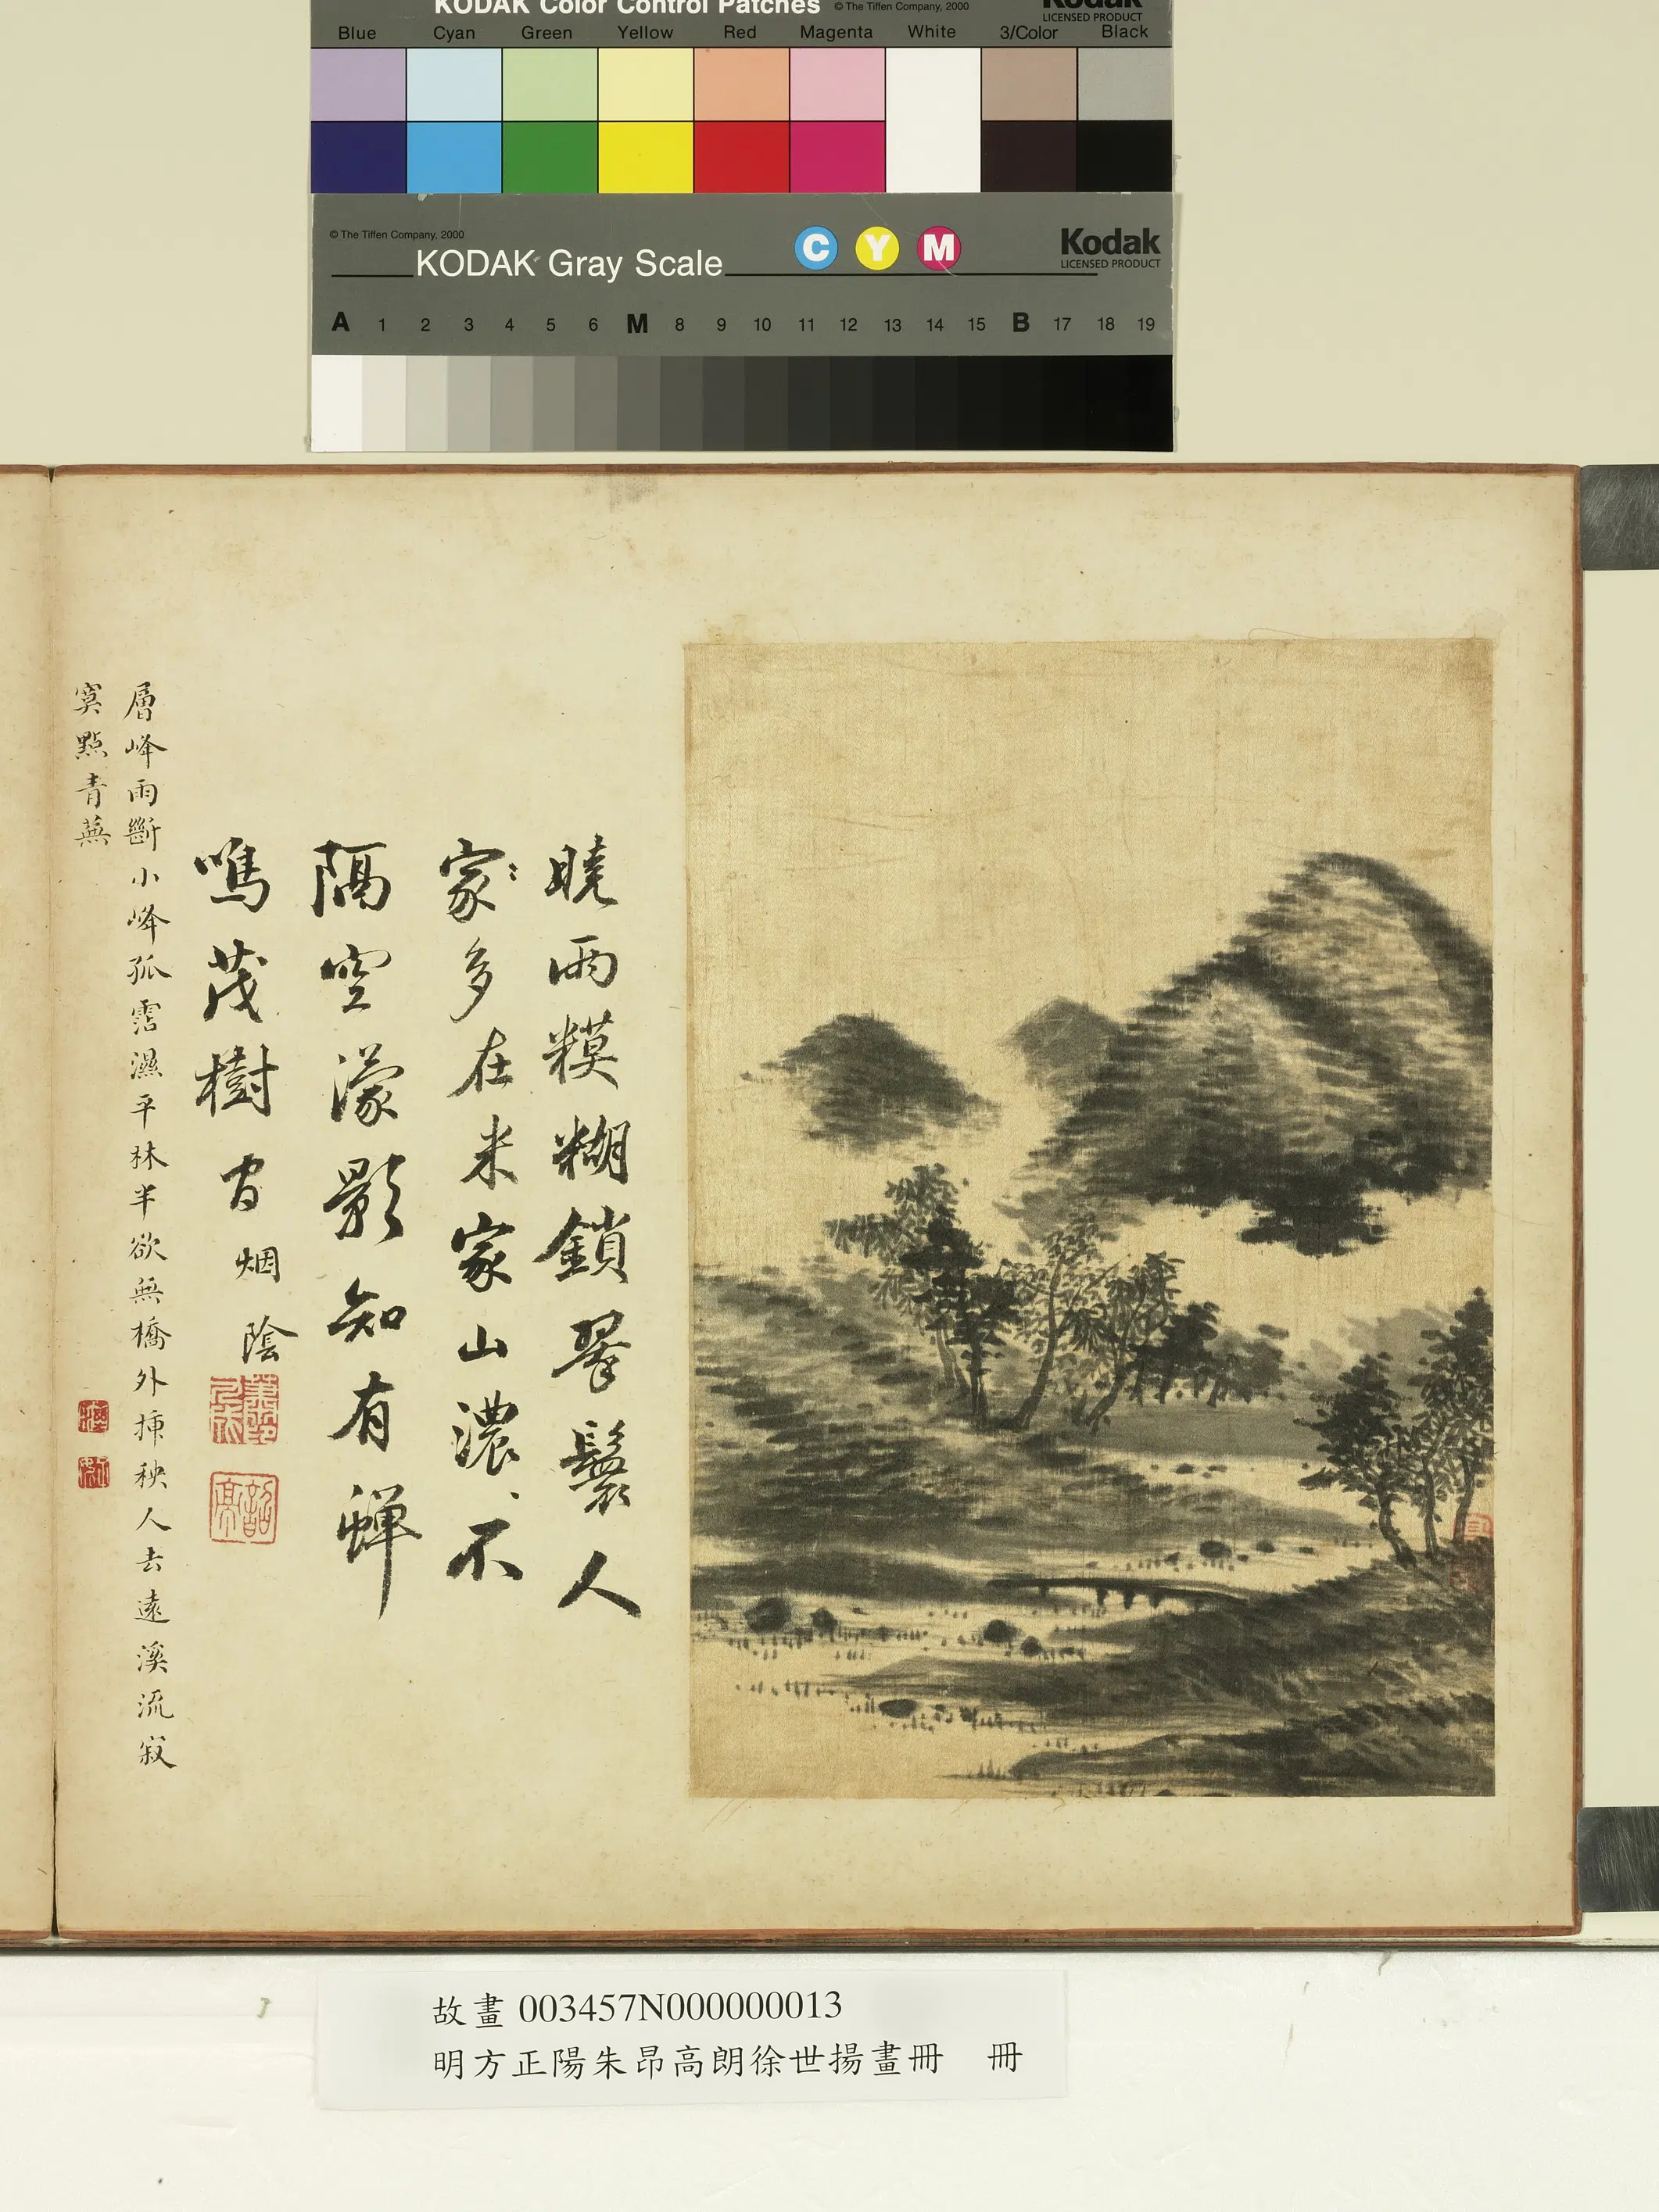 KODAK Color Control Patches © The Tiffen Company, 2000 Kodak
LICENSED PRODUCT
Blue Cyan Green Yellow Red Magenta White 3/Color Black
© The Tiffen Company, 2000
KODAK Gray Scale C Y M Kodak
LICENSED PRODUCT
A 1 2 3 4 5 6 M 8 9 10 11 12 13 14 15 B 17 18 19
曉雨糢糊鎖翠鬟人
家〻多在米家山濃、不
隔空濛影知有蟬
鳴茂樹間 烟陰
層峰雨斷小峰孤霑濕平林半欲無橋外揷秧人去遠溪流寂
寞點青蕪
故畫003457N000000013
明方正陽朱昂高朗徐世揚畫冊 冊